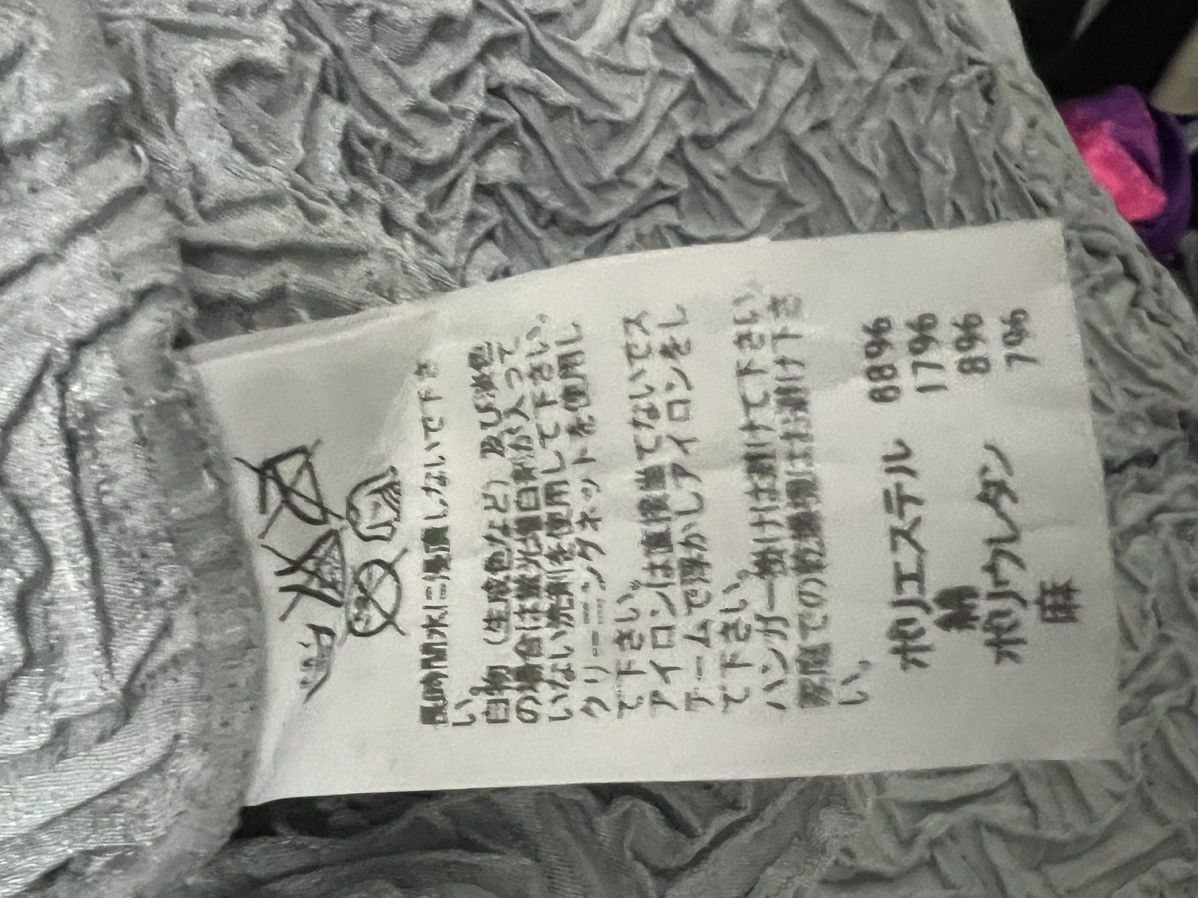 長時間水に浸漬しないで下さ
い。
白物（生成色など）及び淡色
の場合は蛍光増白剤が入って
いない洗剤を使用して下さい。
クリーニングネットを使用し
て下さい。
アイロンは直接当てないでス
チームで浮かしアイロンをし
て下さい。
ハンガー掛けは避けて下さい。
家庭での乾燥機はお避け下さ
い。
ポリエステル 68%
綿 17%
ポリウレタン 8%
麻 7%